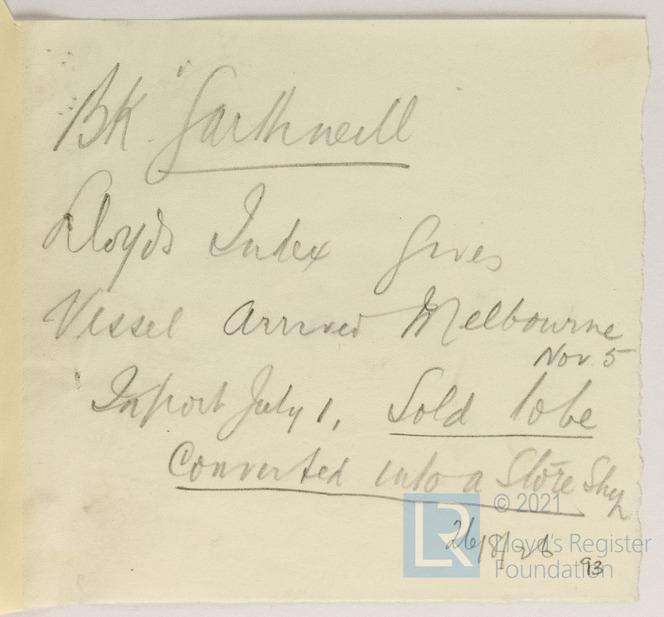 BK "Garthneill
Lloyds Index gives
Vessel Arrived Melbourne
Nov 5
Inport July 1, Sold tobe
Converted into a Store Ship
26/8/26
© 2021
LR Lloyd's Register
Foundation
93